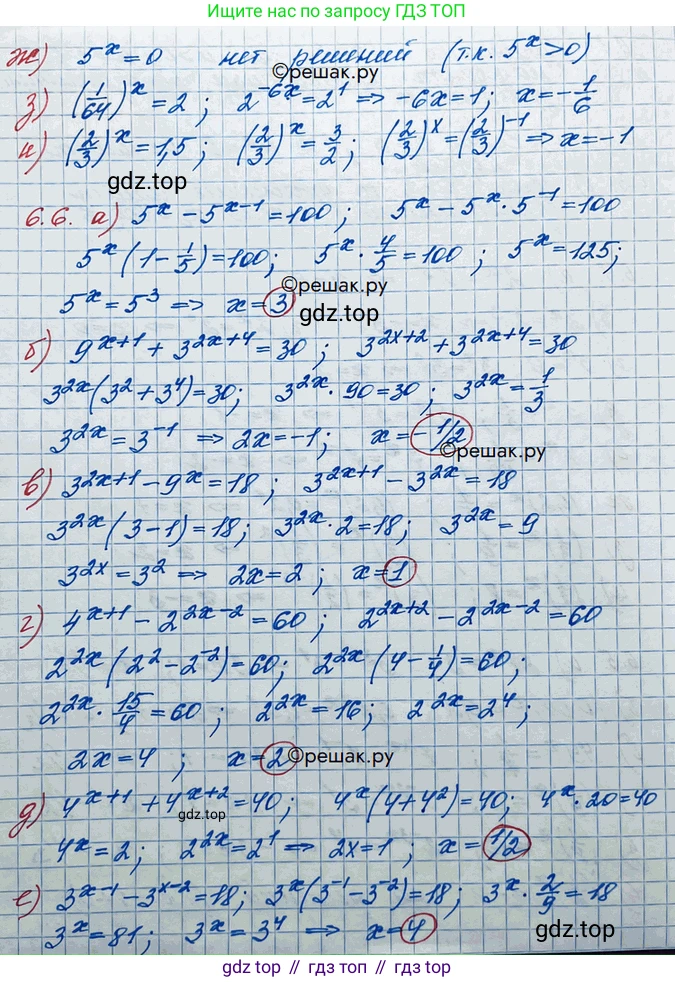 Ищите нас по запросу ГДЗ ТОП
ж) 5^x = 0 нет решений (т.к. 5^x > 0)
©reшак.ру
з) (1/64)^x = 2; 2^{-6x} = 2^1 ⇒ -6x = 1; x = -1/6
и) (2/3)^x = 1,5; (2/3)^x = 3/2; (2/3)^x = (2/3)^{-1} ⇒ x = -1
gdz.top
6.6. а) 5^x - 5^{x-1} = 100; 5^x - 5^x · 5^{-1} = 100
5^x (1 - 1/5) = 100; 5^x · 4/5 = 100; 5^x = 125;
©решак.ру
5^x = 5^3 ⇒ x = 3
gdz.top
б) 9^{x+1} + 3^{2x+4} = 30; 3^{2x+2} + 3^{2x+4} = 30
3^{2x} (3^2 + 3^4) = 30; 3^{2x} · 90 = 30; 3^{2x} = 1/3
3^{2x} = 3^{-1} ⇒ 2x = -1; x = -1/2
©решак.ру
в) 3^{2x+1} - 9^x = 18; 3^{2x+1} - 3^{2x} = 18
3^{2x} (3 - 1) = 18; 3^{2x} · 2 = 18; 3^{2x} = 9
3^{2x} = 3^2 ⇒ 2x = 2; x = 1
г) 4^{x+1} - 2^{2x-2} = 60; 2^{2x+2} - 2^{2x-2} = 60
2^{2x} (2^2 - 2^{-2}) = 60; 2^{2x} (4 - 1/4) = 60;
2^{2x} · 15/4 = 60; 2^{2x} = 16; 2^{2x} = 2^4;
2x = 4; x = 2 ©решак.ру
д) 4^{x+1} + 4^{x+2} = 40; 4^x (4 + 4^2) = 40; 4^x · 20 = 40
gdz.top
4^x = 2; 2^{2x} = 2^1 ⇒ 2x = 1; x = 1/2
е) 3^{x-1} - 3^{x-2} = 18; 3^x (3^{-1} - 3^{-2}) = 18; 3^x · 2/9 = 18
3^x = 81; 3^x = 3^4 ⇒ x = 4
gdz.top
gdz top // гдз топ // gdz.top